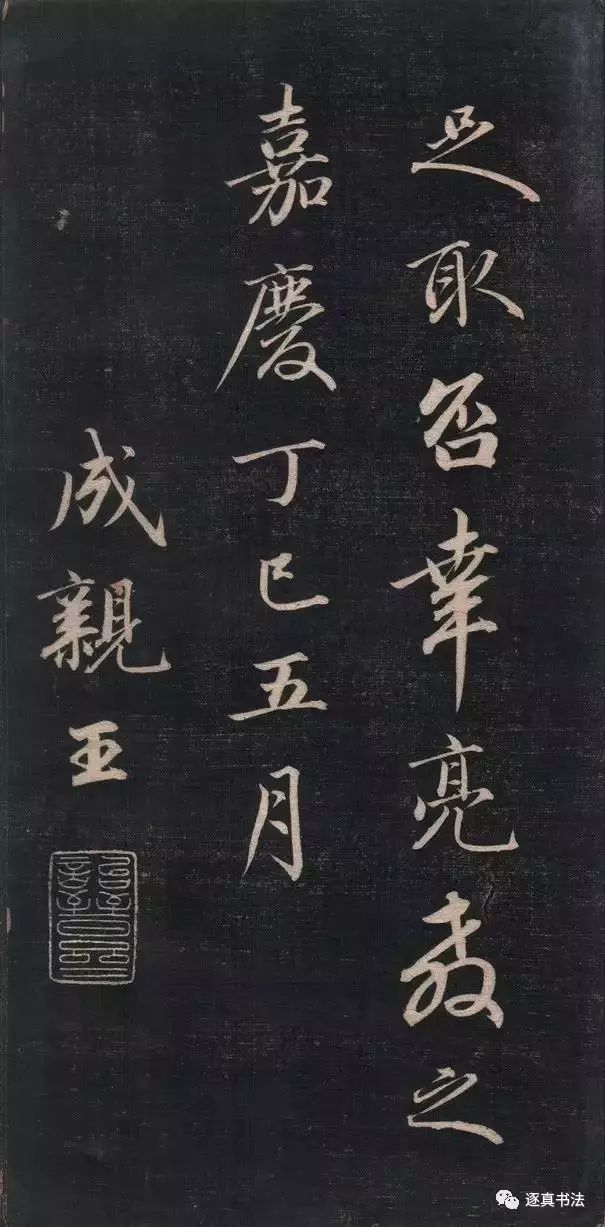 足取否幸亮教之
嘉慶丁巳五月
成親王
逐真书法